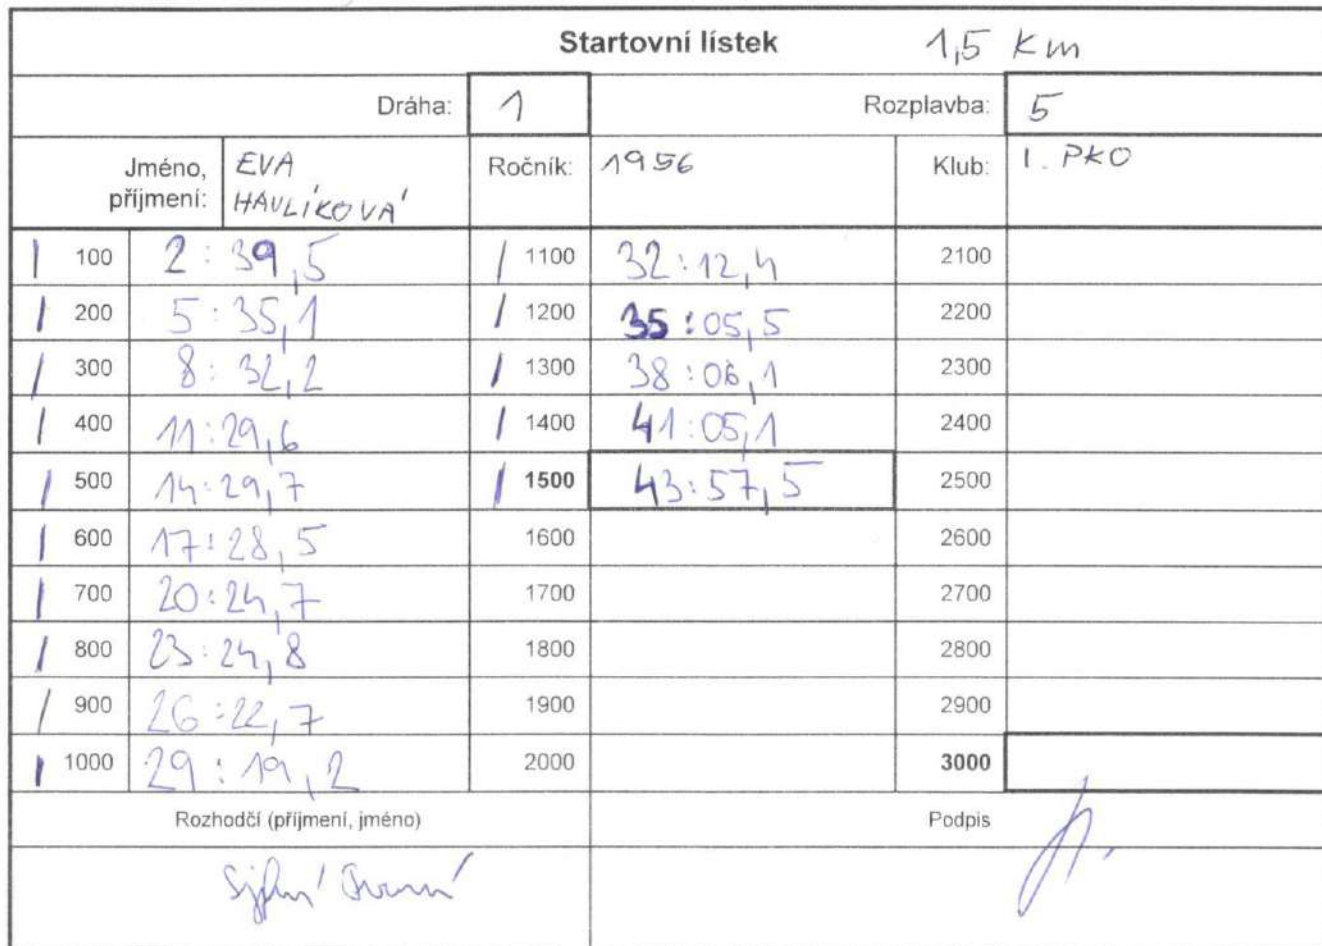 Startovní lístek 1,5 Km
Dráha: 1 Rozplavba: 5
Jméno, příjmení: EVA HAVLÍKOVÁ Ročník: 1956 Klub: I. PKO
100 2:39,5 1100 32:12,4 2100
200 5:35,1 1200 35:05,5 2200
300 8:32,2 1300 38:06,1 2300
400 11:29,6 1400 41:05,1 2400
500 14:29,7 1500 43:57,5 2500
600 17:28,5 1600 2600
700 20:24,7 1700 2700
800 23:24,8 1800 2800
900 26:22,7 1900 2900
1000 29:19,2 2000 3000
Rozhodčí (příjmení, jméno) Podpis